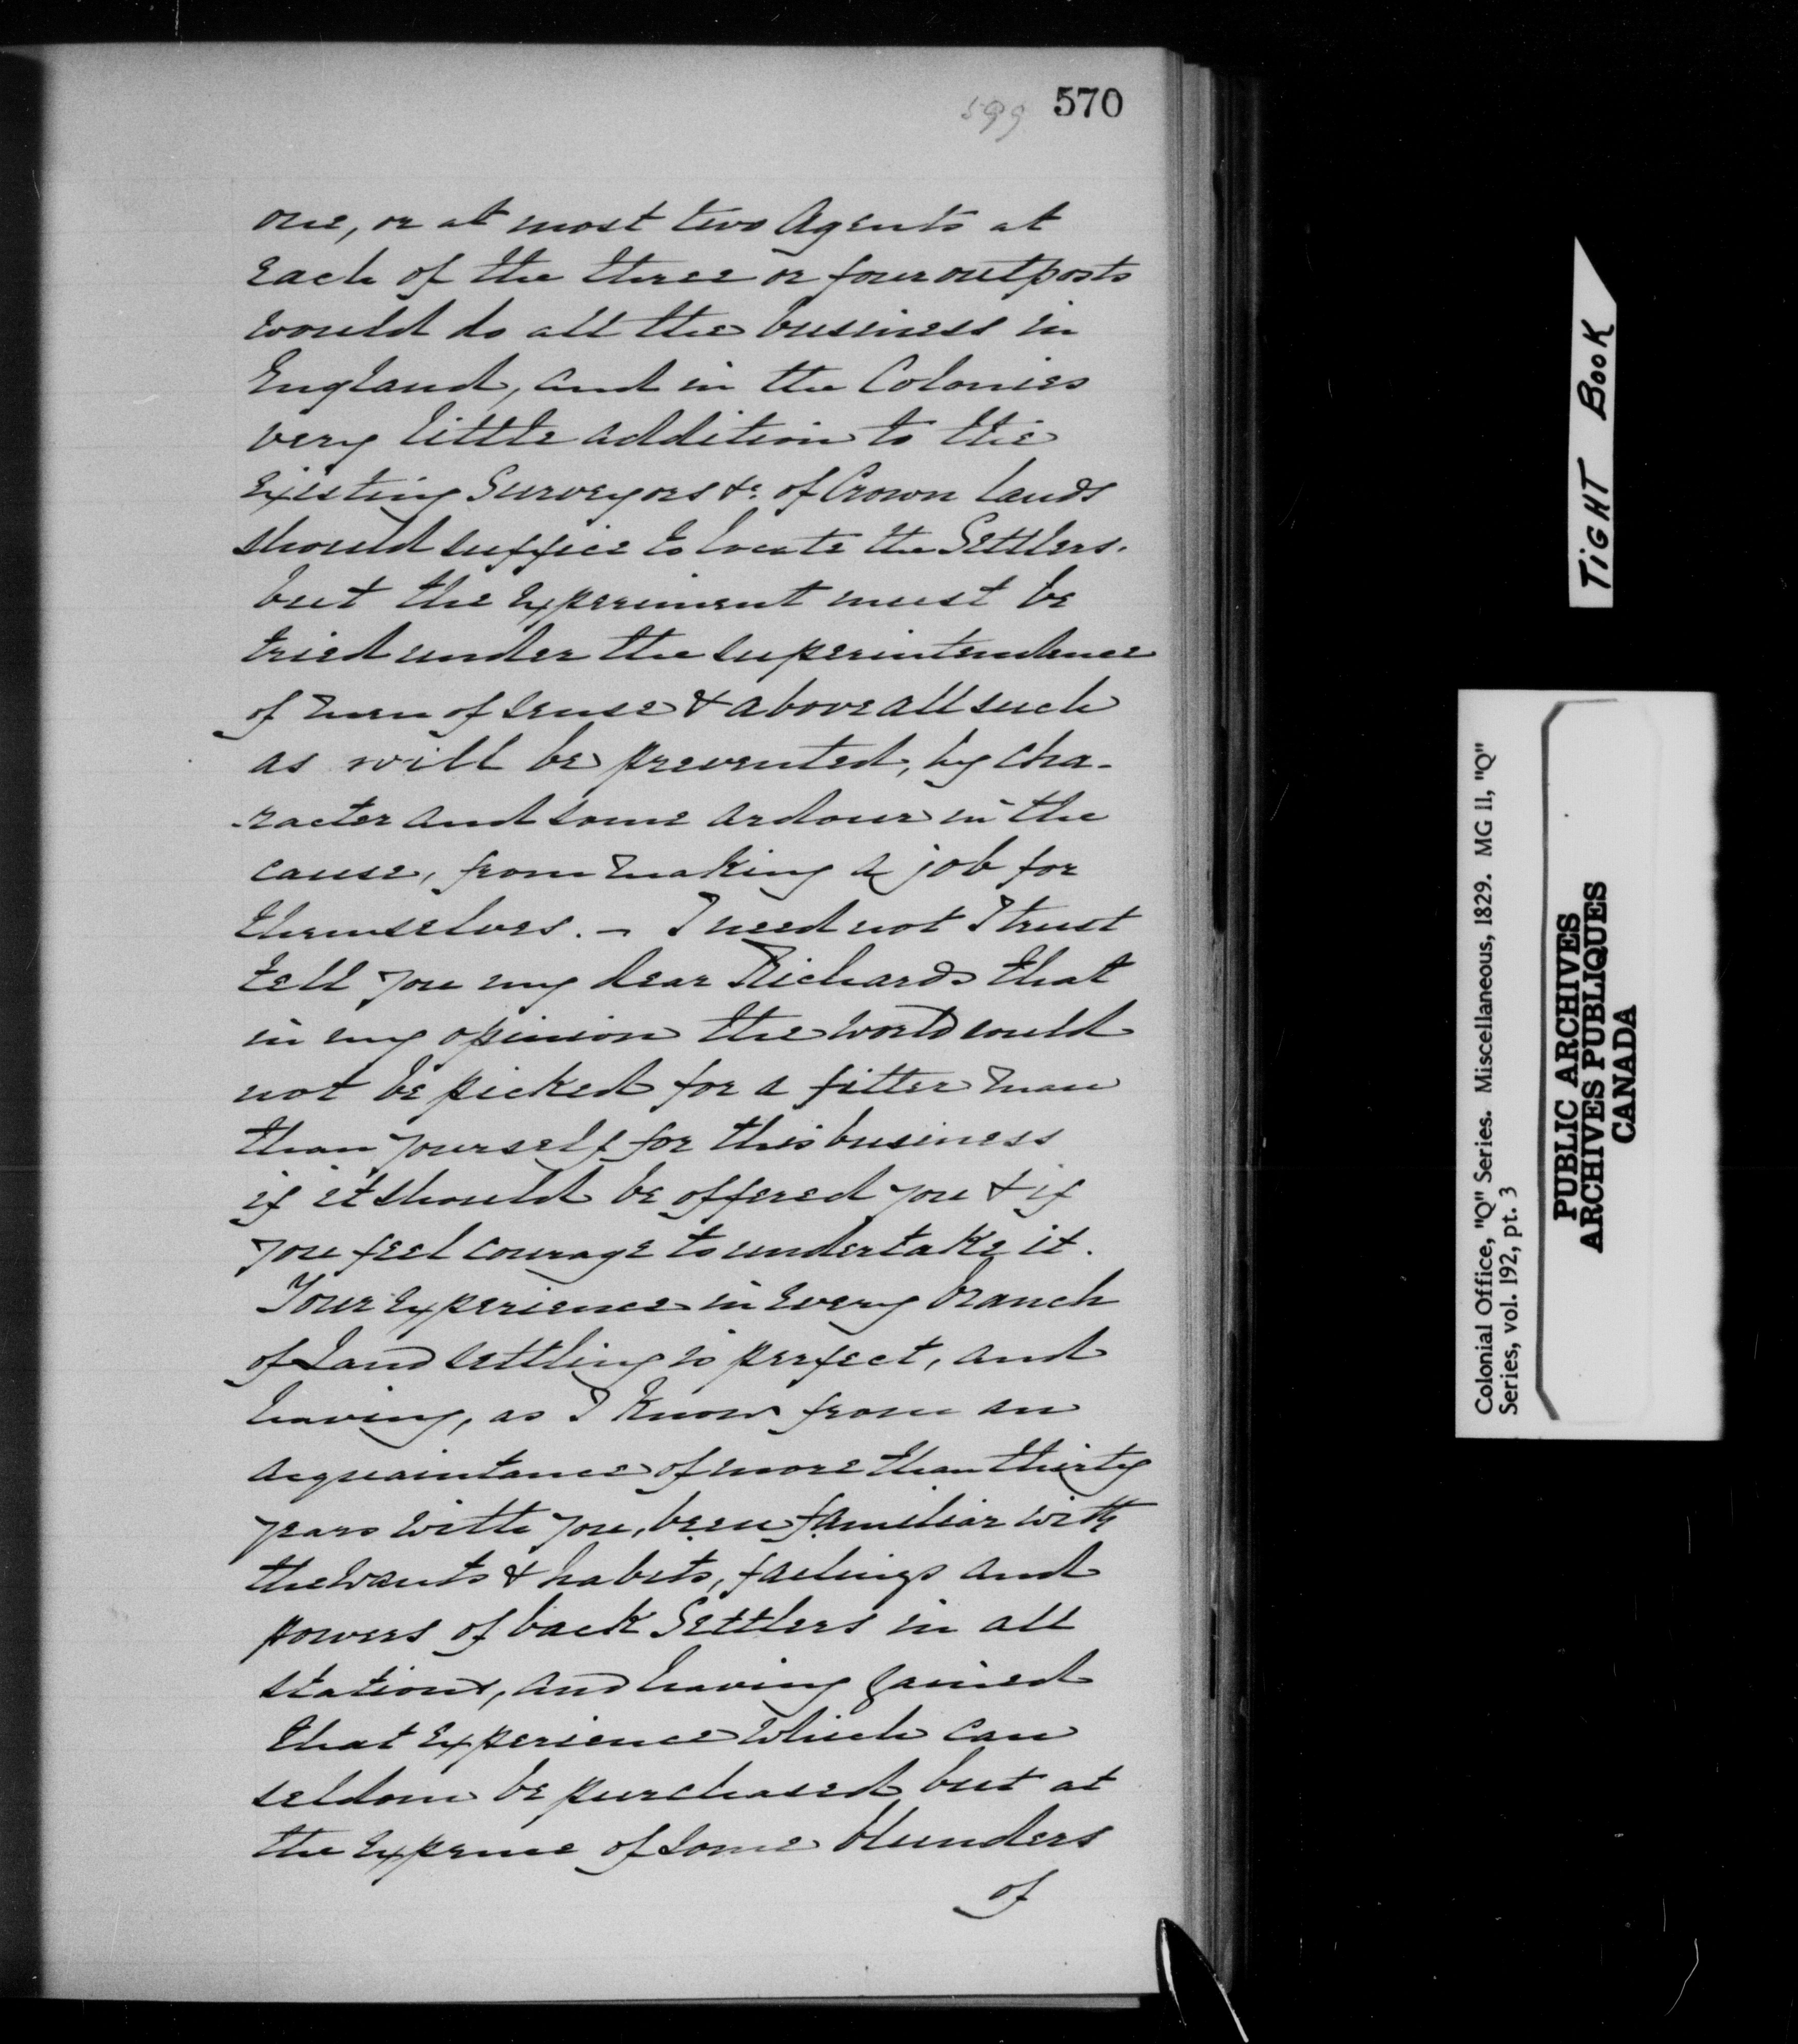 599 570
one, or at most two Agents at
each of the three or four outposts
would do all the business in
England, and in the Colonies
very little addition to the
existing Surveyors &c. of Crown lands
should suffice to locate the Settlers.
but the experiment must be
tried under the superintendence
of men of sense & above all such
as will be prevented, by cha-
-racter and some ardour in the
cause, from making a job for
themselves. – I need not I trust
tell you my dear Richards that
in my opinion the world could
not be picked for a fitter man
than yourself for this business
if it should be offered you & if
you feel courage to undertake it.
Your experience in every branch
of Land settling is perfect, and
having, as I know from an
acquaintance of more than thirty
years with you, been familiar with
the wants & habits, failings and
powers of back Settlers in all
stations, and having gained
that experience which can
seldom be purchased but at
the expense of some blunders
of
TIGHT BOOK
Colonial Office, "Q" Series. Miscellaneous, 1829. MG 11, "Q"
Series, vol. 192, pt. 3
PUBLIC ARCHIVES
ARCHIVES PUBLIQUES
CANADA